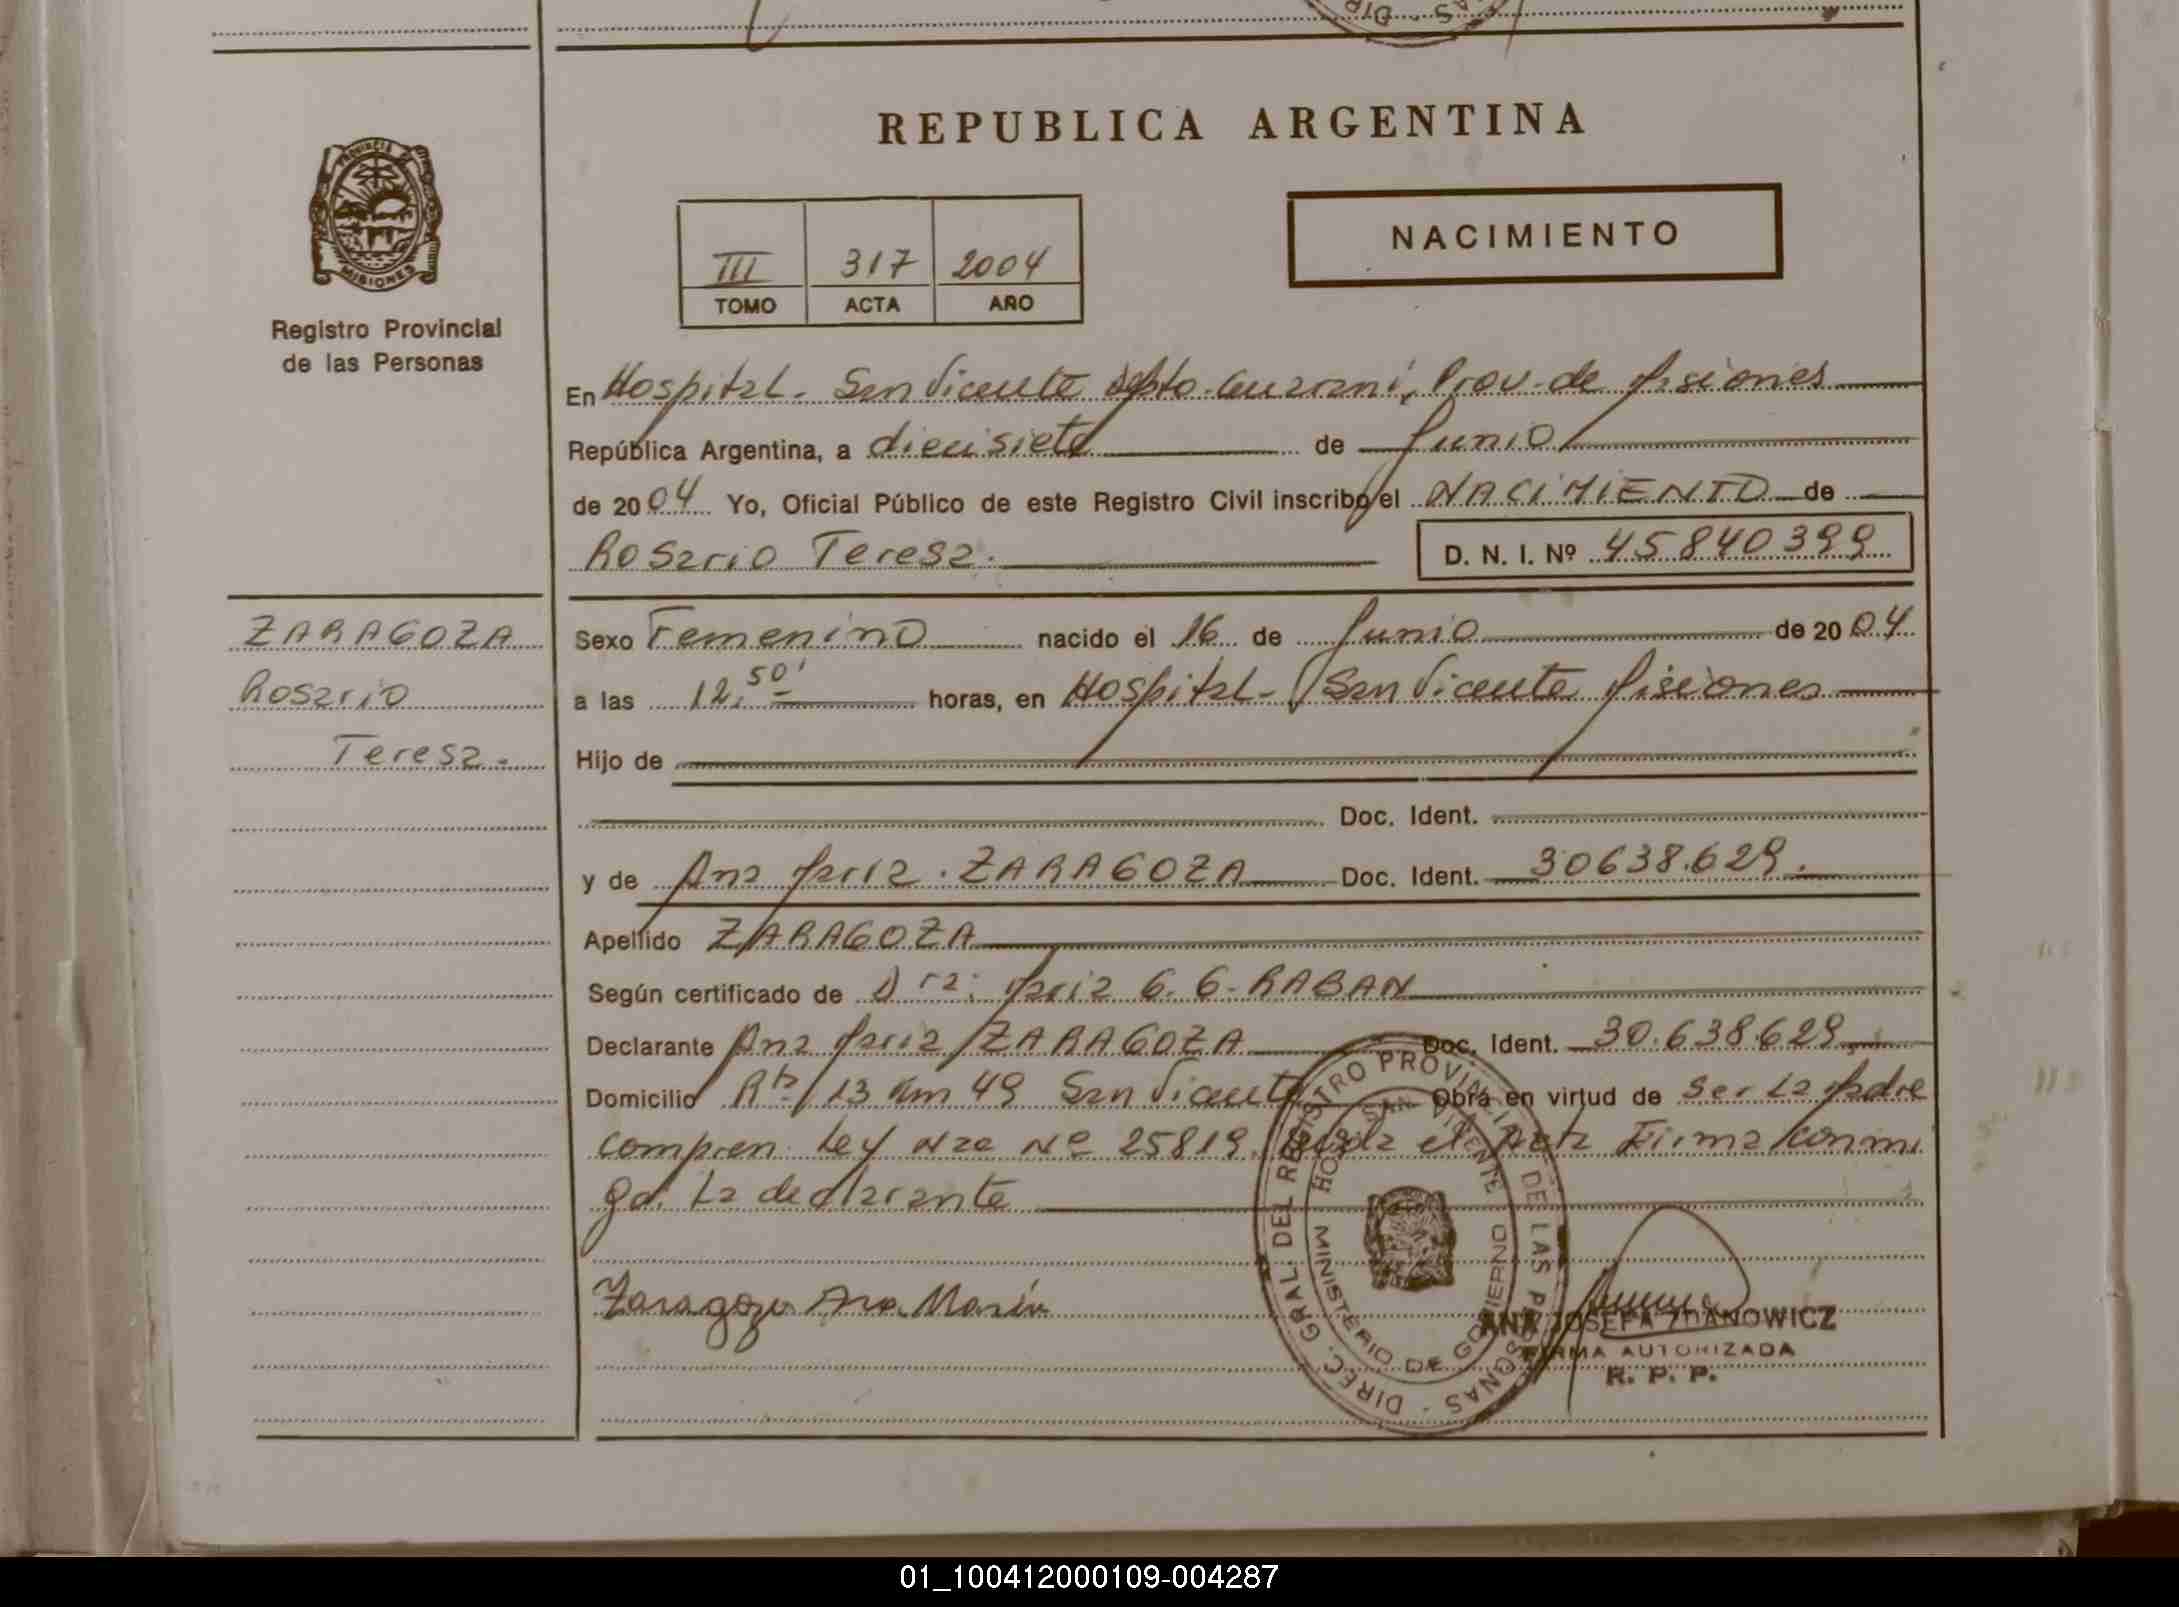 DIR
AS
PROVINCIA DE
MISIONES
Registro Provincial
de las Personas
REPUBLICA ARGENTINA
III 317 2004
TOMO ACTA AÑO
NACIMIENTO
En Hospital - San Vicente Dpto. Guarani, Prov. de Misiones
República Argentina, a diecisiete de Junio
de 2004 Yo, Oficial Público de este Registro Civil inscribo el NACIMIENTO de
Rosario Teresa. D. N. I. Nº 45840399
ZARAGOZA
Rosario
Teresa.
Sexo Femenino nacido el 16 de Junio de 2004
a las 12,50' horas, en Hospital - San Vicente Misiones
Hijo de
Doc. Ident.
y de Ana Maria. ZARAGOZA Doc. Ident. 30638.629.
Apellido ZARAGOZA
Según certificado de Dra: Maria G. G. RABAN
Declarante Ana Maria ZARAGOZA Doc. Ident. 30.638.629
Domicilio Rta 13 Km 49 San Vicente Obra en virtud de ser la Madre
compren. Ley Nº 25819. el Acta Firma conmi
go. La declarante
Zaragoza Ana María
DIREC. GRAL. DEL REGISTRO PROVINCIAL DE LAS PERSONAS -
HOSP. SAN VICENTE
MINISTERIO DE GOBIERNO
ANA JOSEFA ZDANOWICZ
FIRMA AUTORIZADA
R. P. P.
01_100412000109-004287